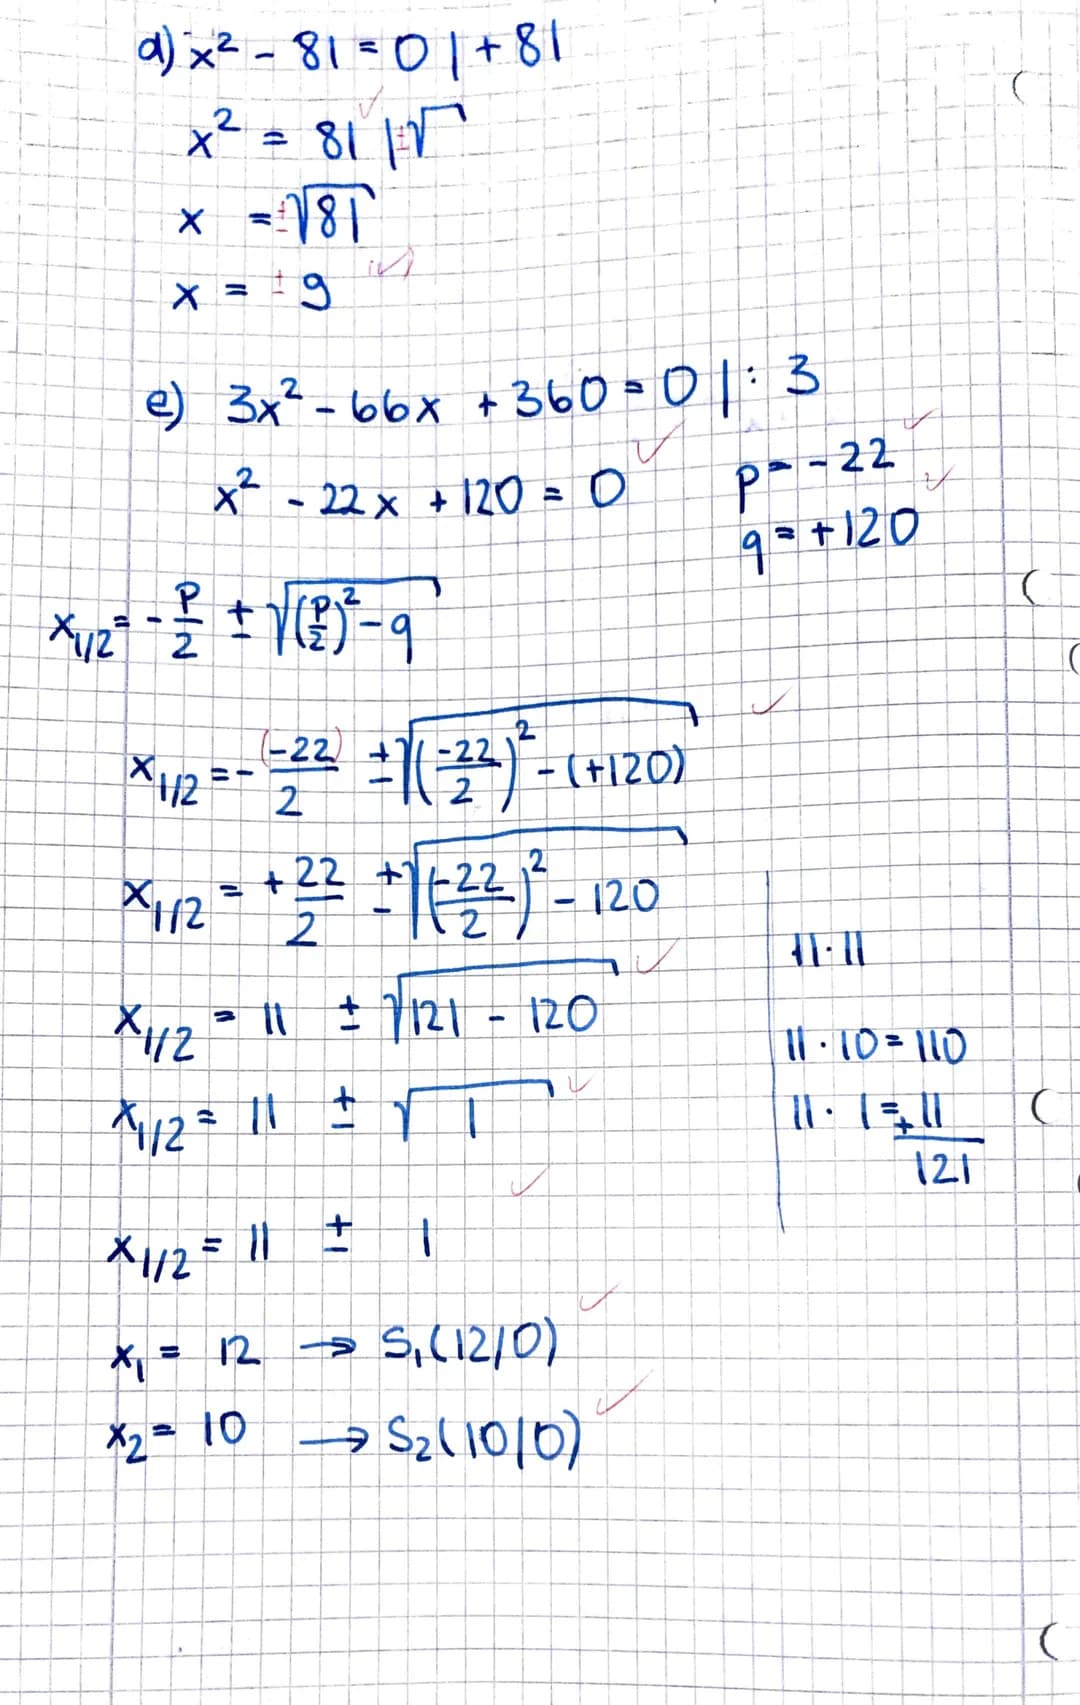 a) x² - 81 = 0 | + 81
x² = 81 | ±√
x = ±√81
x = ± 9
e) 3x² - 66x + 360 = 0 | : 3
x² - 22x + 120 = 0
p = - 22
q = + 120
x1/2 = - p/2 ± √((p/2)² - q)
x1/2 = - (-22)/2 ± √((-22/2)² - (+120))
x1/2 = + 22/2 ± √((-22/2)² - 120)
x1/2 = 11 ± √(121 - 120)
x1/2 = 11 ± √1
x1/2 = 11 ± 1
x1 = 12 → S1(12/0)
x2 = 10 → S2(10/0)
11 · 11
11 · 10 = 110
11 · 1 = + 11
121